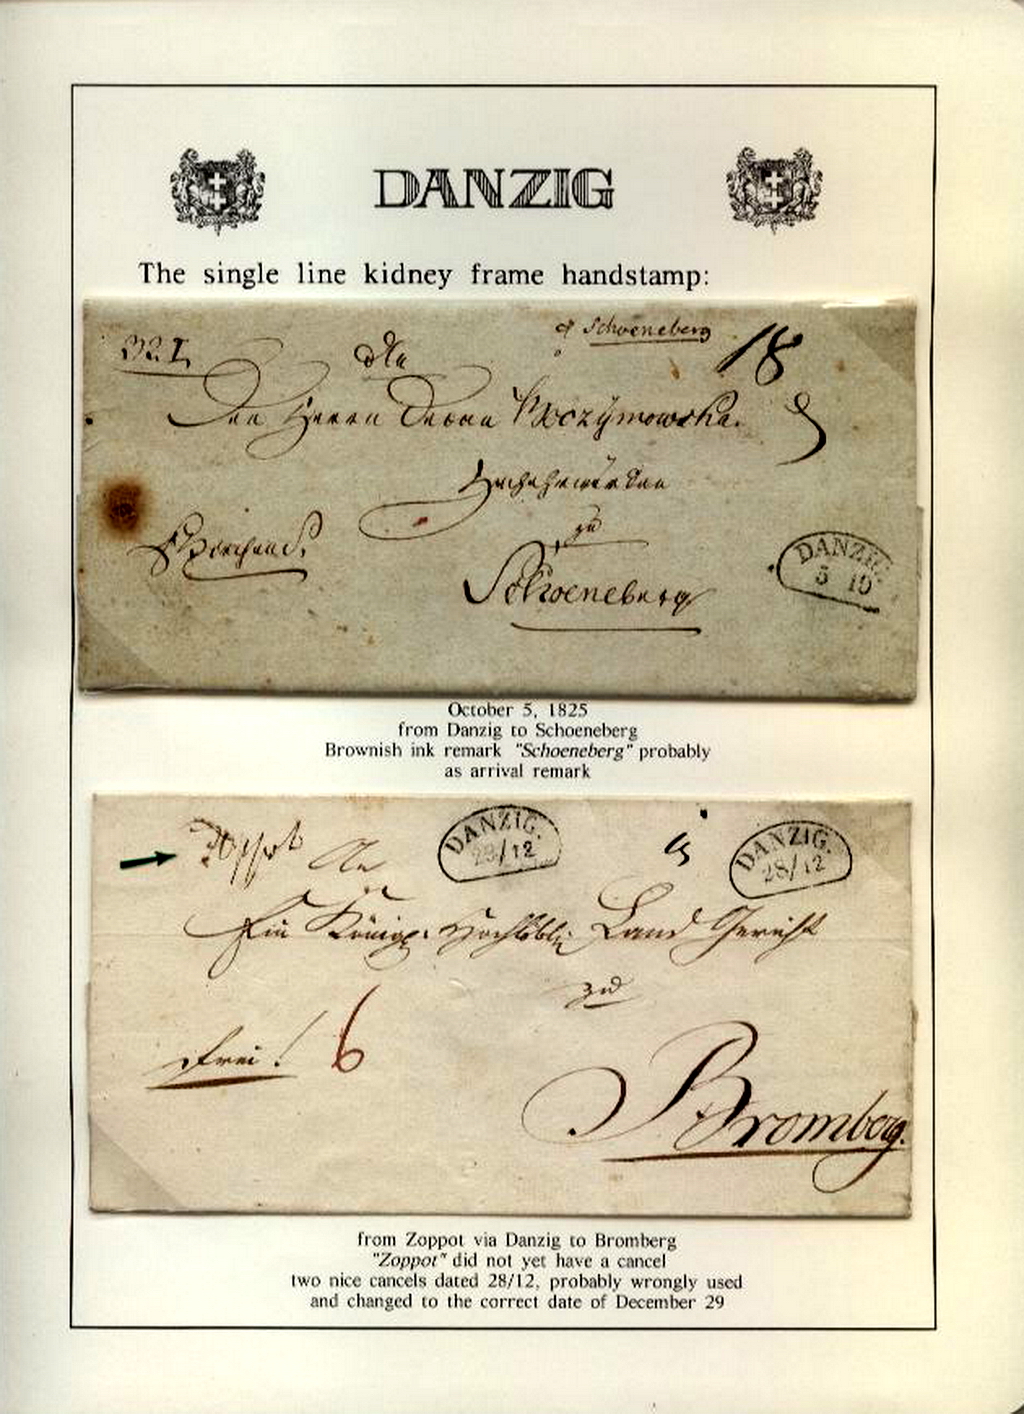 DANZIG
The single line kidney frame handstamp:
Schoeneberg
18
An
Den Herrn
Hochehrwürden
zu
Schoeneberg
DANZIG.
5 10
October 5, 1825
from Danzig to Schoeneberg
Brownish ink remark "Schoeneberg" probably
as arrival remark
Zoppot An
DANZIG.
29/12
DANZIG.
28/12
Ein Königl: Hochlöbl: Land Gericht
zu
frei! 6
Bromberg.
from Zoppot via Danzig to Bromberg
"Zoppot" did not yet have a cancel
two nice cancels dated 28/12, probably wrongly used
and changed to the correct date of December 29